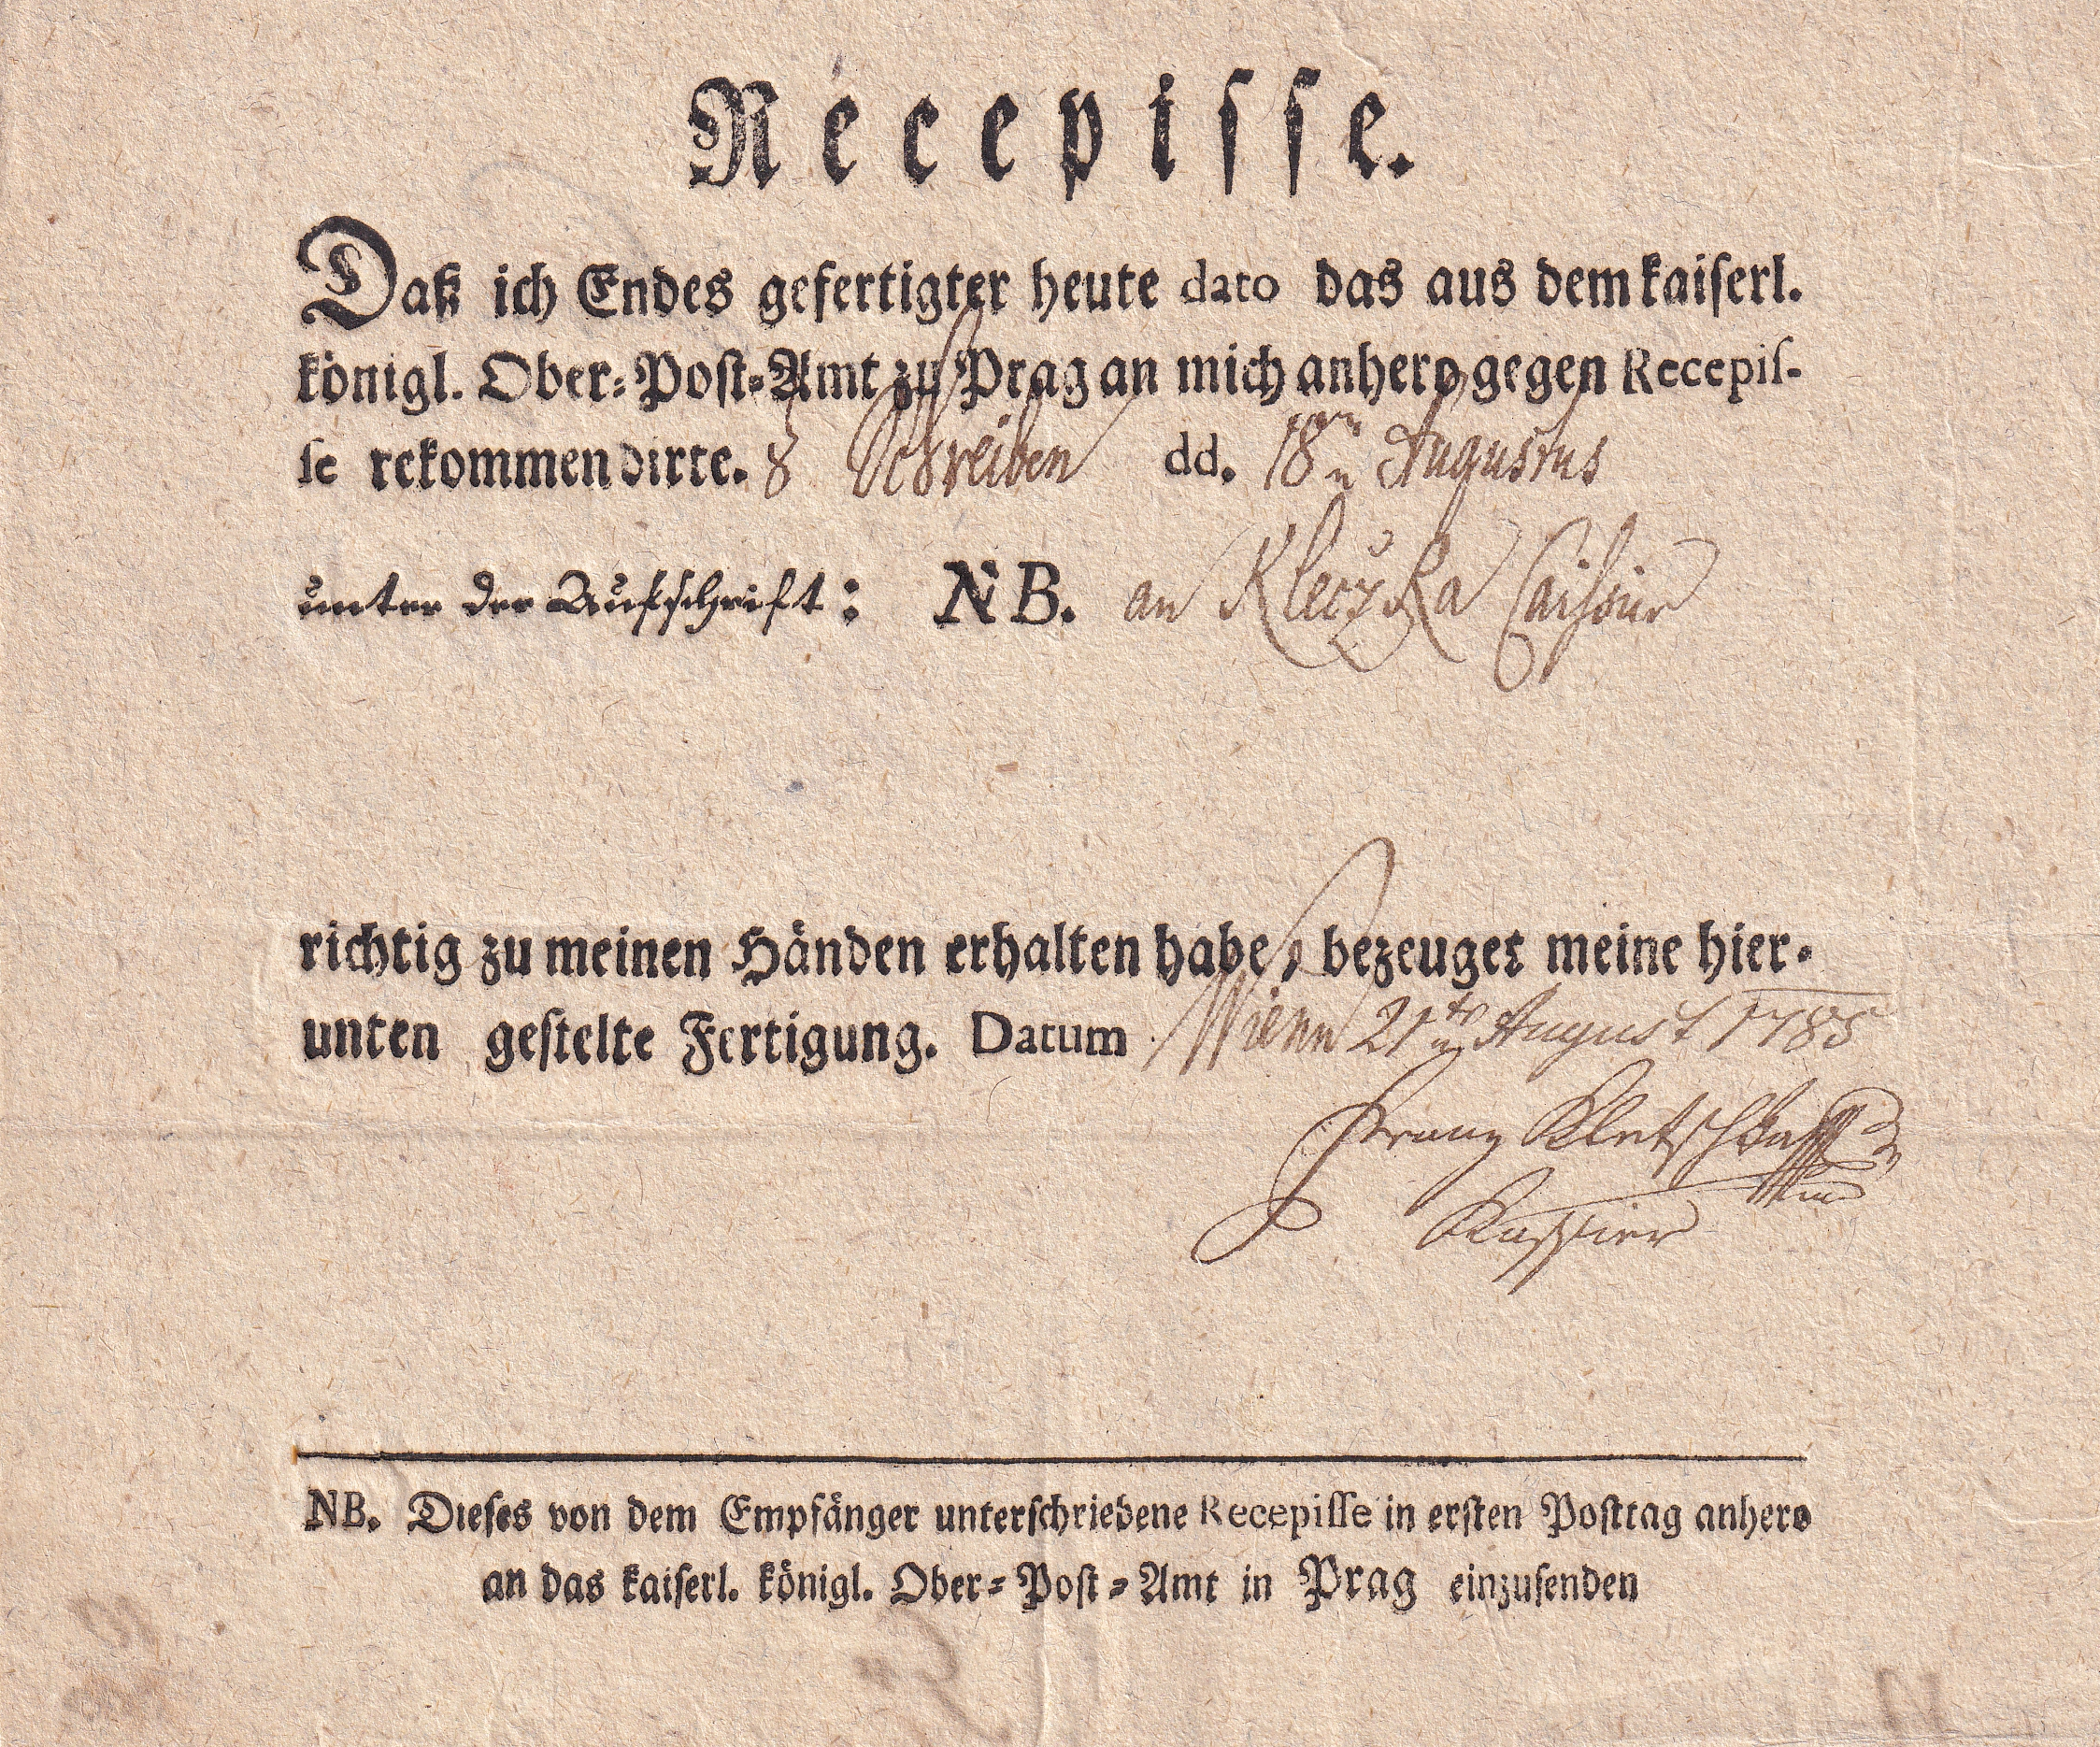 Recepisse.
Daß ich Endes gefertigter heute dato das aus dem kaiserl.
königl. Ober-Post-Amt zu Prag an mich anhero gegen Recepis-
se rekommendirte. Schreiben dd. 18n Augustus
unter der Aufschrift: NB. an Kleczka Caissier
richtig zu meinen Händen erhalten habe, bezeuget meine hier-
unten gestelte Fertigung. Datum Wienn 21tn August 1785
Franz Kletschka
Kassier
NB. Dieses von dem Empfänger unterschriebene Recepisse in ersten Posttag anhero
an das kaiserl. königl. Ober-Post-Amt in Prag einzusenden